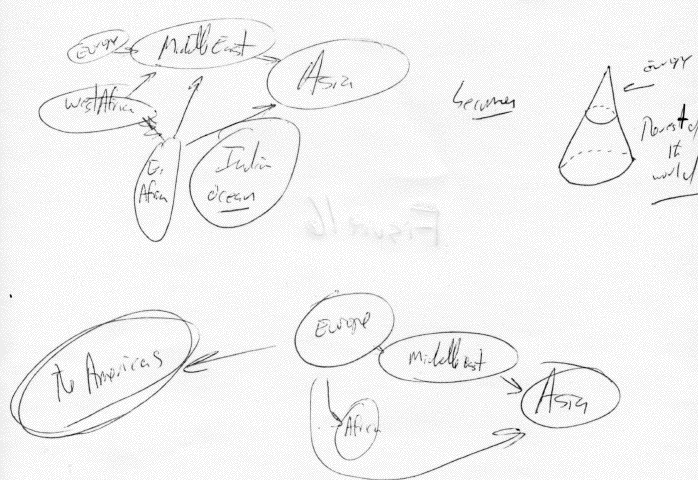 Europe
Middle East
Asia
West Africa
E.
Africa
Indian
ocean
becomes
Europe
the rest of
the
world
Figure 16
the Americas
Europe
Middle East
Asia
Africa